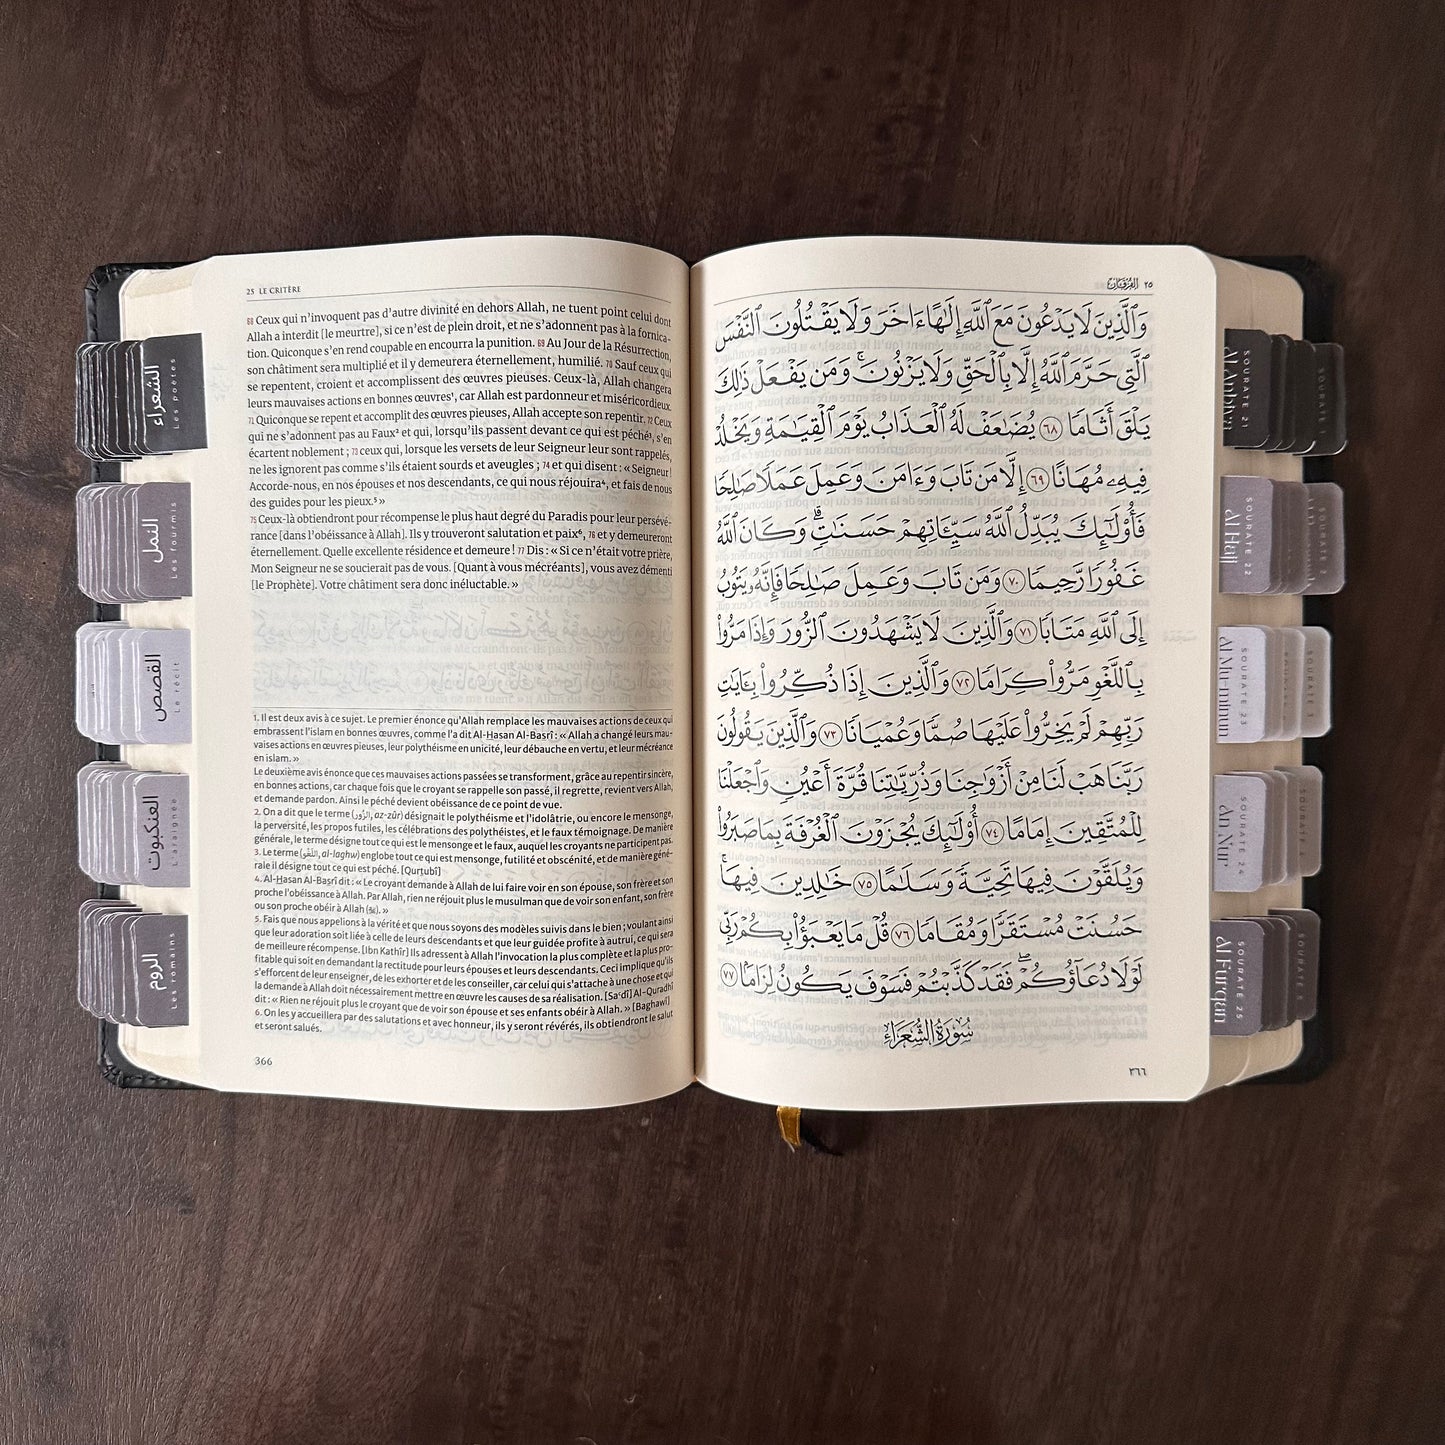 25 LE CRITÈRE
68 Ceux qui n’invoquent pas d’autre divinité en dehors Allah, ne tuent point celui dont
Allah a interdit [le meurtre], si ce n’est de plein droit, et ne s’adonnent pas à la fornica-
tion. Quiconque s’en rend coupable en encourra la punition. 69 Au Jour de la Résurrection,
son châtiment sera multiplié et il y demeurera éternellement, humilié. 70 Sauf ceux qui
se repentent, croient et accomplissent des œuvres pieuses. Ceux-là, Allah changera
leurs mauvaises actions en bonnes œuvres¹, car Allah est pardonneur et miséricordieux.
71 Quiconque se repent et accomplit des œuvres pieuses, Allah accepte son repentir. 72 Ceux
qui ne s’adonnent pas au Faux² et qui, lorsqu’ils passent devant ce qui est péché³, s’en
écartent noblement ; 73 ceux qui, lorsque les versets de leur Seigneur leur sont rappelés,
ne les ignorent pas comme s’ils étaient sourds et aveugles ; 74 et qui disent : « Seigneur !
Accorde-nous, en nos épouses et nos descendants, ce qui nous réjouira⁴, et fais de nous
des guides pour les pieux.⁵ »
75 Ceux-là obtiendront pour récompense le plus haut degré du Paradis pour leur persévé-
rance [dans l’obéissance à Allah]. Ils y trouveront salutation et paix⁶, 76 et y demeureront
éternellement. Quelle excellente résidence et demeure ! 77 Dis : « Si ce n’était votre prière,
Mon Seigneur ne se soucierait pas de vous. [Quant à vous mécréants], vous avez démenti
[le Prophète]. Votre châtiment sera donc inéluctable. »
1. Il est deux avis à ce sujet. Le premier énonce qu’Allah remplace les mauvaises actions de ceux qui
embrassent l’islam en bonnes œuvres, comme l’a dit Al-Ḥasan Al-Baṣrî : « Allah a changé leurs mau-
vaises actions en œuvres pieuses, leur polythéisme en unicité, leur débauche en vertu, et leur mécréance
en islam. »
Le deuxième avis énonce que ces mauvaises actions passées se transforment, grâce au repentir sincère,
en bonnes actions, car chaque fois que le croyant se rappelle son passé, il regrette, revient vers Allah,
et demande pardon. Ainsi le péché devient obéissance de ce point de vue.
2. On a dit que le terme (الزُّور, az-zûr) désignait le polythéisme et l’idolâtrie, ou encore le mensonge,
la perversité, les propos futiles, les célébrations des polythéistes, et le faux témoignage. De manière
générale, le terme désigne tout ce qui est le mensonge et le faux, auquel les croyants ne participent pas.
3. Le terme (اللَّغْو, al-laghw) englobe tout ce qui est mensonge, futilité et obscénité, et de manière géné-
rale il désigne tout ce qui est péché. [Qurṭubî]
4. Al-Ḥasan Al-Baṣrî dit : « Le croyant demande à Allah de lui faire voir en son épouse, son frère et son
proche l’obéissance à Allah. Par Allah, rien ne réjouit plus le musulman que de voir son enfant, son frère
ou son proche obéir à Allah (ﷻ). »
5. Fais que nous appelions à la vérité et que nous soyons des modèles suivis dans le bien ; voulant ainsi
que leur adoration soit liée à celle de leurs descendants et que leur guidée profite à autrui, ce qui sera
de meilleure récompense. [Ibn Kathîr] Ils adressent à Allah l’invocation la plus complète et la plus pro-
fitable qui soit en demandant la rectitude pour leurs épouses et leurs descendants. Ceci implique qu’ils
s’efforcent de leur enseigner, de les exhorter et de les conseiller, car celui qui s’attache à une chose et qui
la demande à Allah doit nécessairement mettre en œuvre les causes de sa réalisation. [Sa‘dî] Al-Quradhî
dit : « Rien ne réjouit plus le croyant que de voir son épouse et ses enfants obéir à Allah. » [Baghawî]
6. On les y accueillera par des salutations et avec honneur, ils y seront révérés, ils obtiendront le salut
et seront salués.
366
٢٥ الفُرقَان
وَٱلَّذِينَ لَا يَدْعُونَ مَعَ ٱللَّهِ إِلَٰهًا ءَاخَرَ وَلَا يَقْتُلُونَ ٱلنَّفْسَ
ٱلَّتِي حَرَّمَ ٱللَّهُ إِلَّا بِٱلْحَقِّ وَلَا يَزْنُونَۚ وَمَن يَفْعَلْ ذَٰلِكَ
يَلْقَ أَثَامًا ٦٨ يُضَٰعَفْ لَهُ ٱلْعَذَابُ يَوْمَ ٱلْقِيَٰمَةِ وَيَخْلُدْ
فِيهِۦ مُهَانًا ٦٩ إِلَّا مَن تَابَ وَءَامَنَ وَعَمِلَ عَمَلًا صَٰلِحًا
فَأُو۟لَٰٓئِكَ يُبَدِّلُ ٱللَّهُ سَيِّـَٔاتِهِمْ حَسَنَٰتٍۗ وَكَانَ ٱللَّهُ
غَفُورًا رَّحِيمًا ٧٠ وَمَن تَابَ وَعَمِلَ صَٰلِحًا فَإِنَّهُۥ يَتُوبُ
إِلَى ٱللَّهِ مَتَابًا ٧١ وَٱلَّذِينَ لَا يَشْهَدُونَ ٱلزُّورَ وَإِذَا مَرُّوا۟
بِٱللَّغْوِ مَرُّوا۟ كِرَامًا ٧٢ وَٱلَّذِينَ إِذَا ذُكِّرُوا۟ بِـَٔايَٰتِ
رَبِّهِمْ لَمْ يَخِرُّوا۟ عَلَيْهَا صُمًّا وَعُمْيَانًا ٧٣ وَٱلَّذِينَ يَقُولُونَ
رَبَّنَا هَبْ لَنَا مِنْ أَزْوَٰجِنَا وَذُرِّيَّٰتِنَا قُرَّةَ أَعْيُنٍ وَٱجْعَلْنَا
لِلْمُتَّقِينَ إِمَامًا ٧٤ أُو۟لَٰٓئِكَ يُجْزَوْنَ ٱلْغُرْفَةَ بِمَا صَبَرُوا۟
وَيُلَقَّوْنَ فِيهَا تَحِيَّةً وَسَلَٰمًا ٧٥ خَٰلِدِينَ فِيهَاۚ
حَسُنَتْ مُسْتَقَرًّا وَمُقَامًا ٧٦ قُلْ مَا يَعْبَؤُا۟ بِكُمْ رَبِّي
لَوْلَا دُعَآؤُكُمْۖ فَقَدْ كَذَّبْتُمْ فَسَوْفَ يَكُونُ لِزَامًا ٧٧
سُورَةُ الشُّعَرَاءِ
٣٦٦
الشعراء
Les poètes
النمل
Les fourmis
القصص
Le récit
العنكبوت
L'araignée
الروم
Les romains
SOURATE 21
Al Anbiya
SOURATE 22
Al Hajj
SOURATE 23
Al Mu'minun
SOURATE 24
An Nur
SOURATE 25
Al Furqan